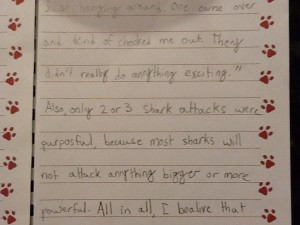 just hanging around. One came over
and kind of checked me out. They
didn't really do anything exciting."
Also, only 2 or 3 shark attacks were
purposful, because most sharks will
not attack anything bigger or more
powerful. All in all, I bealive that